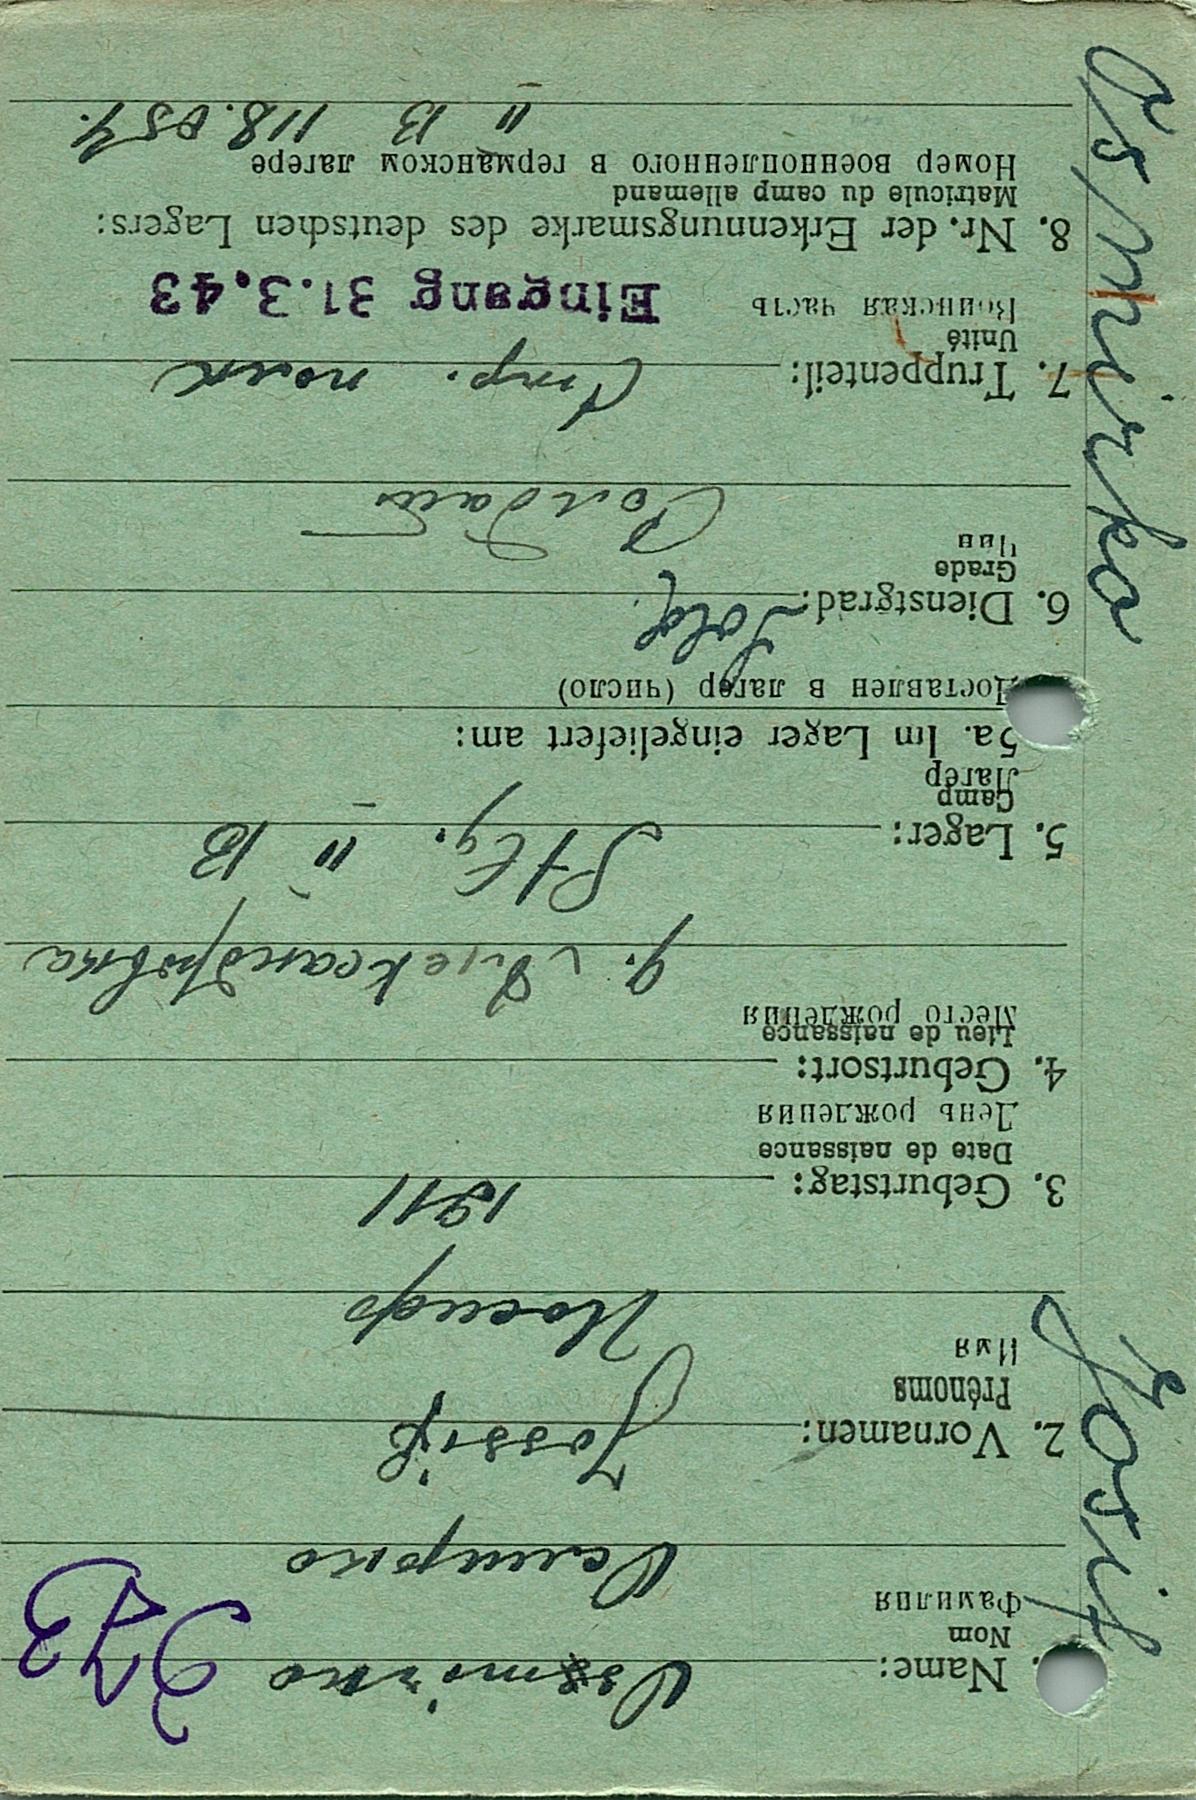 Josif Osmirko
373
1. Name: Ossmirko
Nom
Фамилия
Осмирко
2. Vornamen: Jossif
Prénoms
Имя
Иосиф
3. Geburtstag: 1911
Date de naissance
День рождения
4. Geburtsort:
Lieu de naissance
Место рождения
д. Александровка
5. Lager: Stlg. II B
Camp
Лагер
5a. Im Lager eingeliefert am:
Доставлен в лагер (число)
6. Dienstgrad: Sold.
Grade
Чин
Солдат
7. Truppenteil: Стр. полк
Unité
Воинская часть
Eingang 31.3.43
8. Nr. der Erkennungsmarke des deutschen Lagers:
Matricule du camp allemand
Номер военнопленного в германском лагере
II B 118.857.